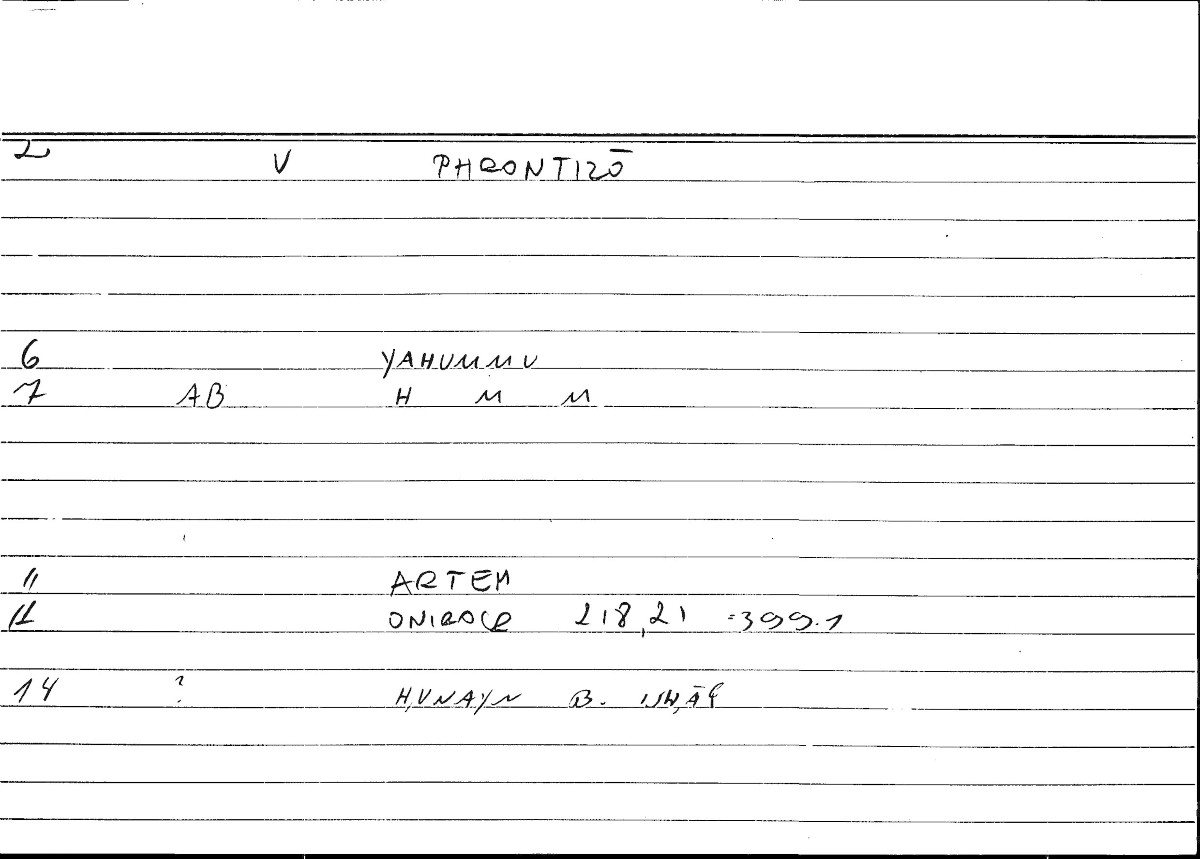 2 V PHRONTIZŌ
6 YAHUMMU
7 AB H M M
11 ARTEM
12 ONIROCR 218,21 =399.1
14 ? ḤUNAYN B. ISḤĀQ